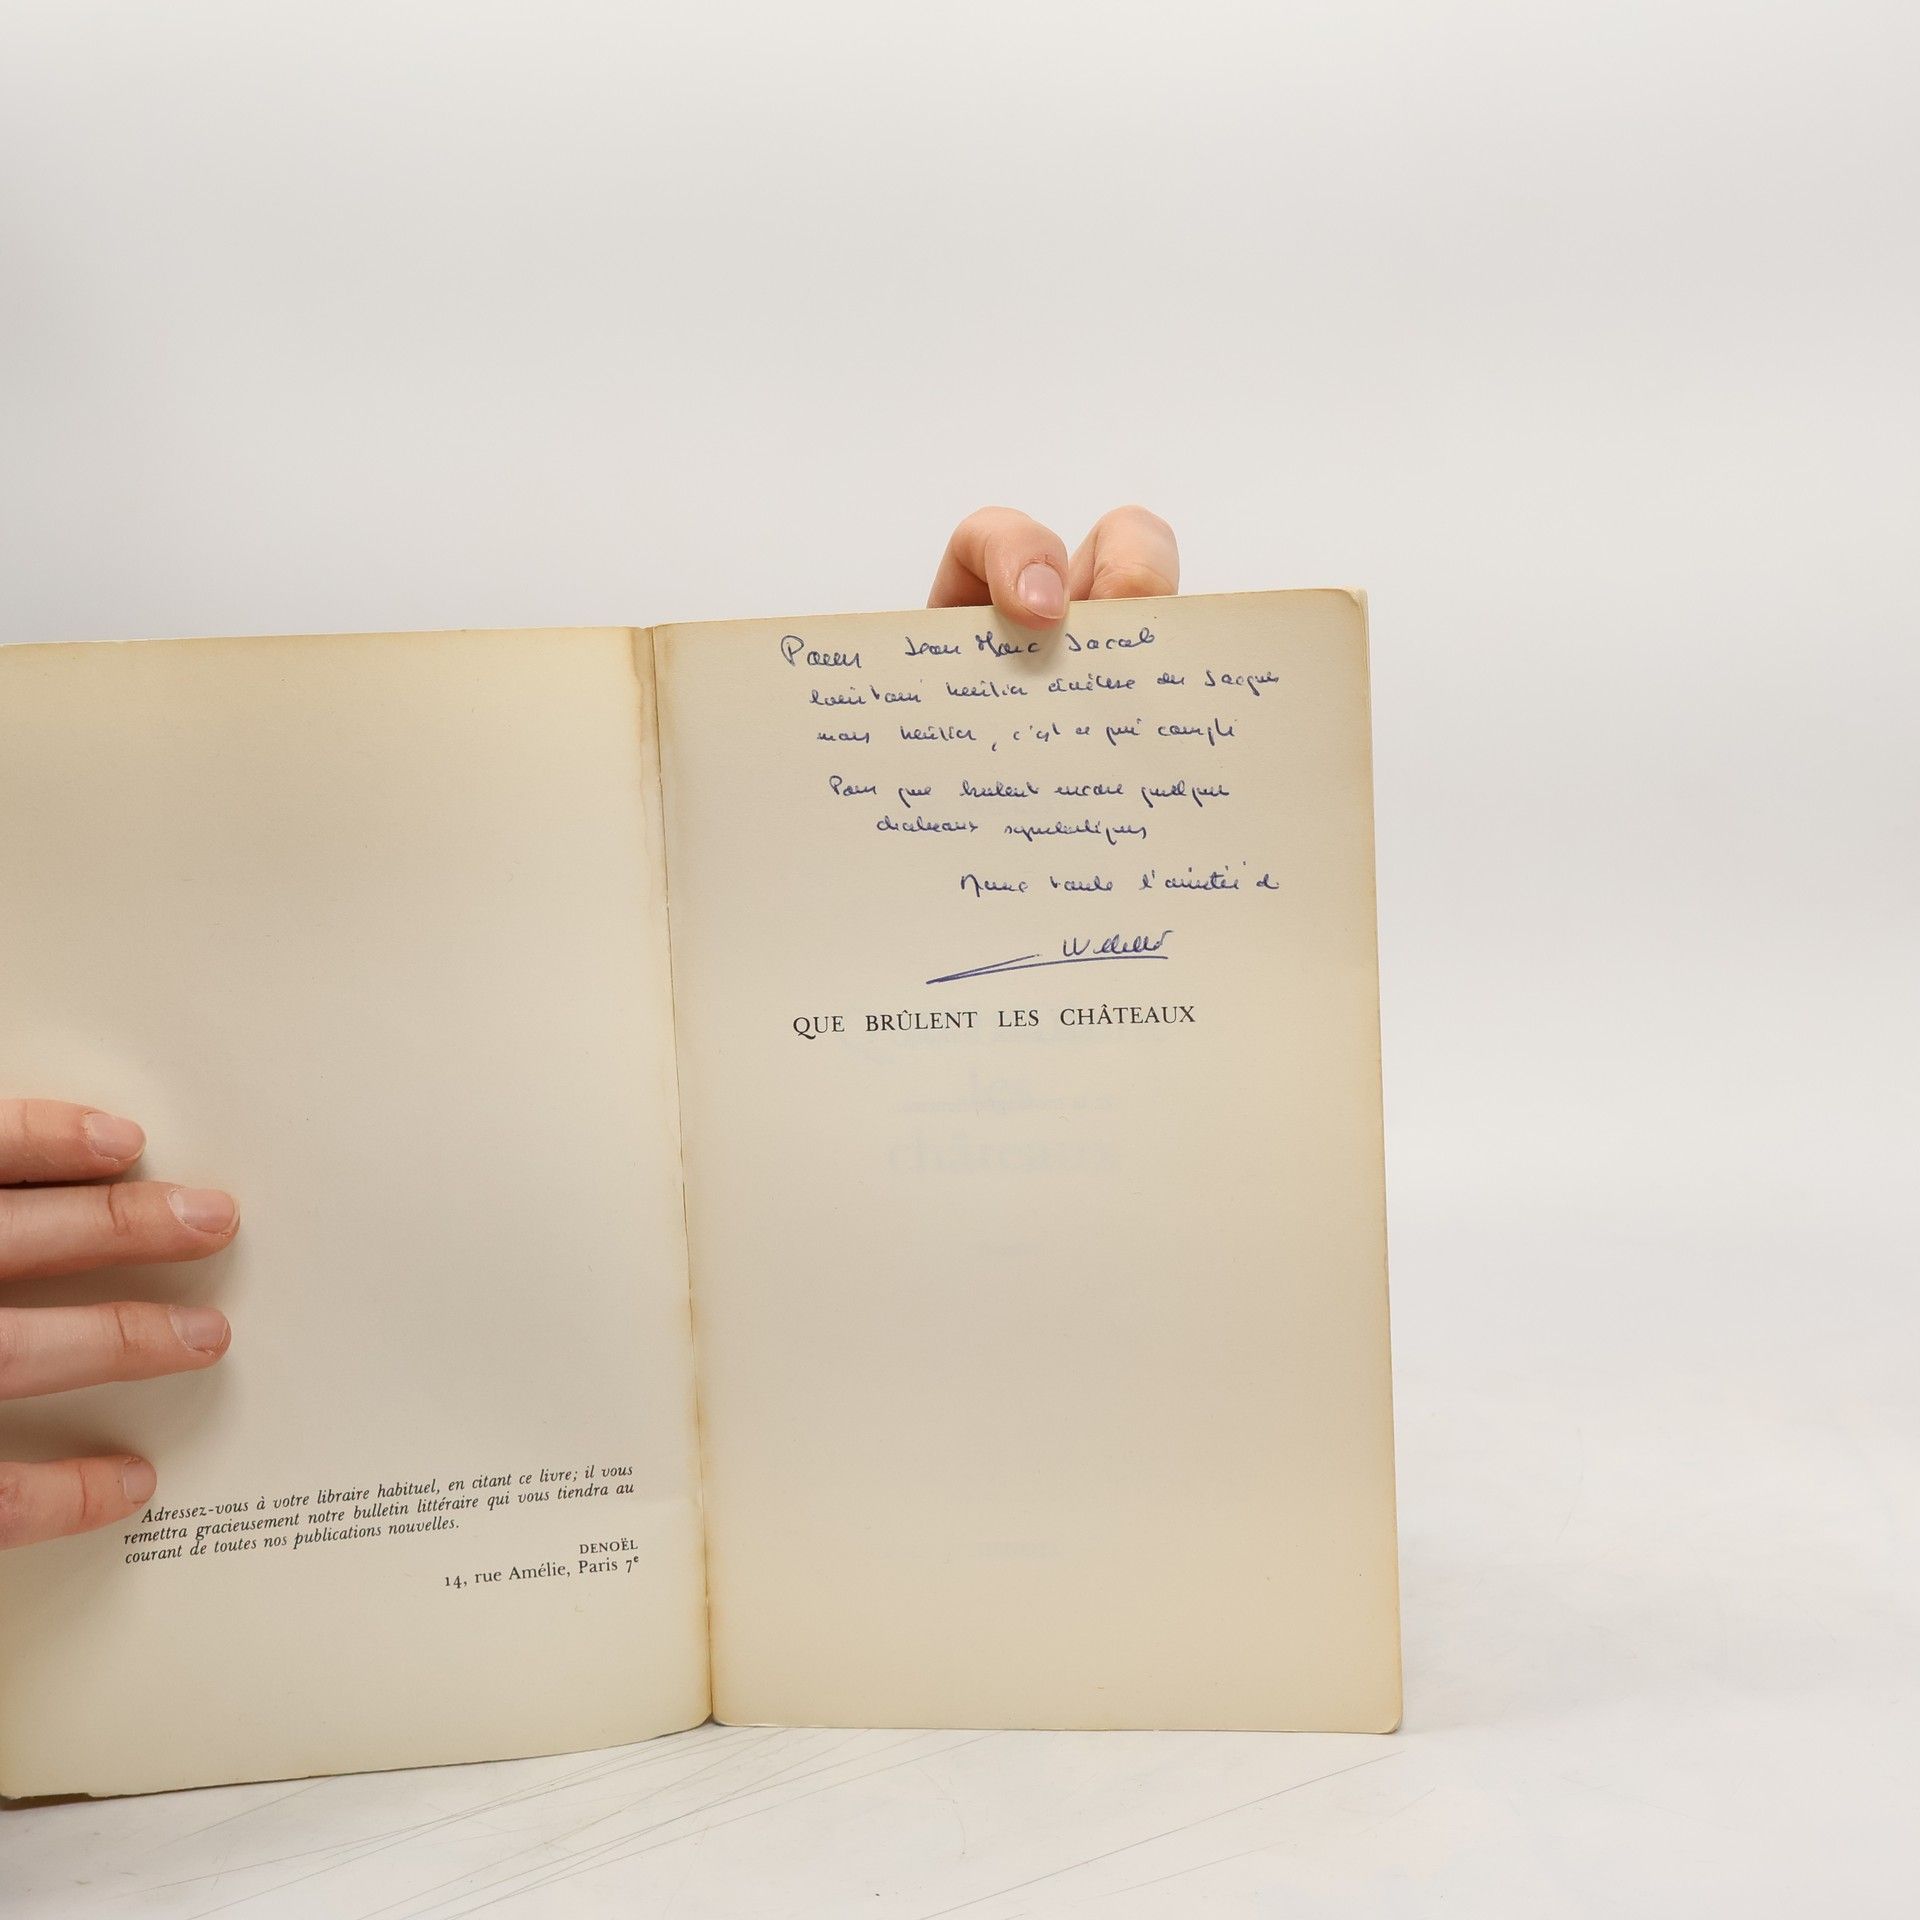 Adressez-vous à votre libraire habituel, en citant ce livre; il vous
remettra gracieusement notre bulletin littéraire qui vous tiendra au
courant de toutes nos publications nouvelles.
DENOËL
14, rue Amélie, Paris 7e
Pour Jean Marc Jacob
héritier des Jacques
mais héritier, c'est ce qui compte
Pour que brulent encore quelques
chateaux symboliques
toute l'amitié d
QUE BRÛLENT LES CHÂTEAUX